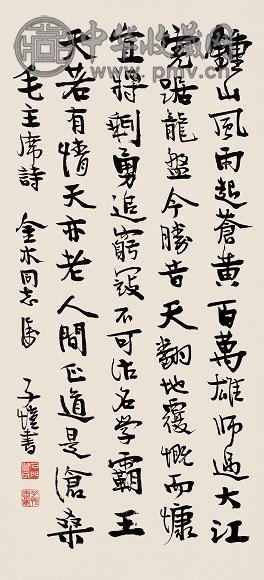 中华收藏网
www.pmv.cn
鍾山風雨起蒼黄百萬雄師過大江
虎踞龍盤今勝昔天翻地覆慨而慷
宜将剩勇追窮寇不可沽名学霸王
天若有情天亦老人間正道是滄桑
毛主席詩 金 同志属 子愷書